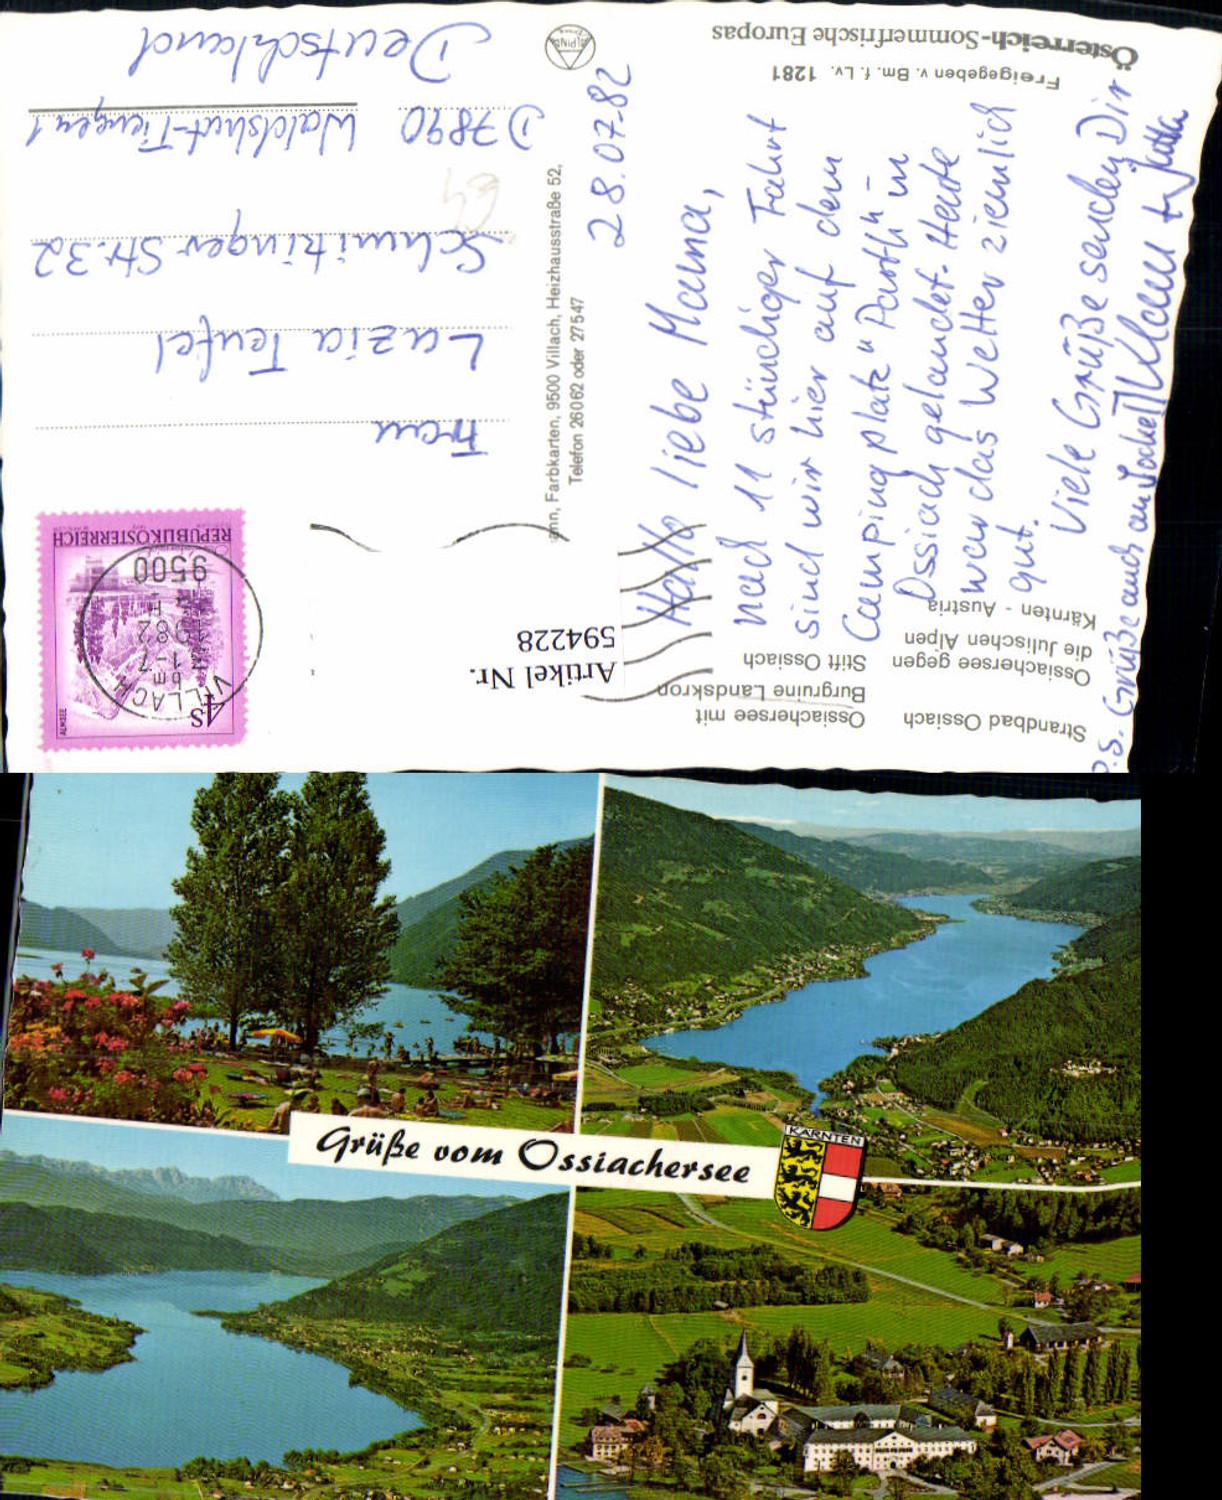 Österreich-Sommerfrische Europas
Freigegeben v. Bm. f. Lv. 1281
Strandbad Ossiach
Ossiachersee mit
Burgruine Landskron
Ossiachersee gegen
die Julischen Alpen
Stift Ossiach
Kärnten - Austria
28.07.82
Hallo liebe Mama,
nach 11 stündiger Fahrt
sind wir hier auf dem
Campingplatz "Parth" in
Ossiach gelandet. Heute
war das Wetter ziemlich
gut.
Viele Grüße senden Dir
Klaus + Jutta
P.S. Grüße auch an
Farbkarten, 9500 Villach, Heizhausstraße 52,
Telefon 26062 oder 27547
ALPINE
REPUBLIK ÖSTERREICH
4S
ALMSEE
9500
1982
VILLACH
Artikel Nr.
594228
Frau
Luzia Teufel
Schmitzinger Str. 32
D 7890 Waldshut-Tiengen 1
Deutschland
64
Grüße vom Ossiachersee
KÄRNTEN